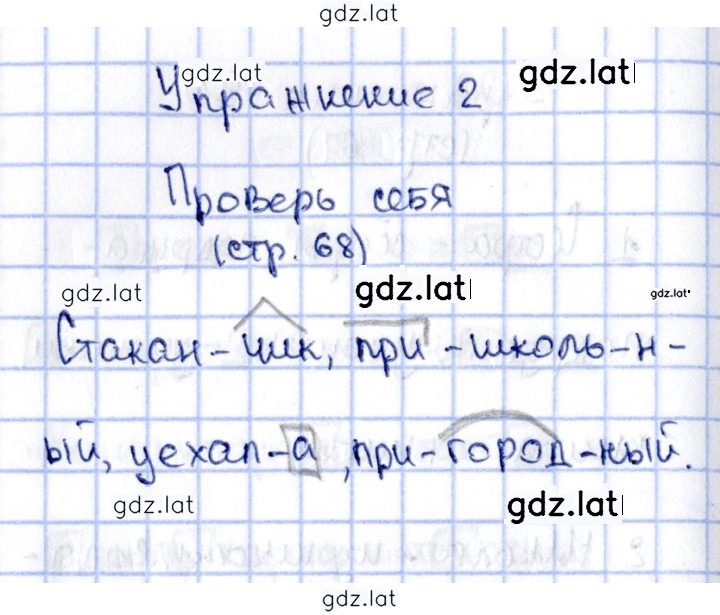 gdz.lat
gdz.lat
gdz.lat
Упражнение 2
Проверь себя
(стр. 68)
gdz.lat
gdz.lat
gdz.lat
Стакан-чик, при-школь-н-
ый, уехал-а, при-город-ный.
gdz.lat
gdz.lat
gdz.lat